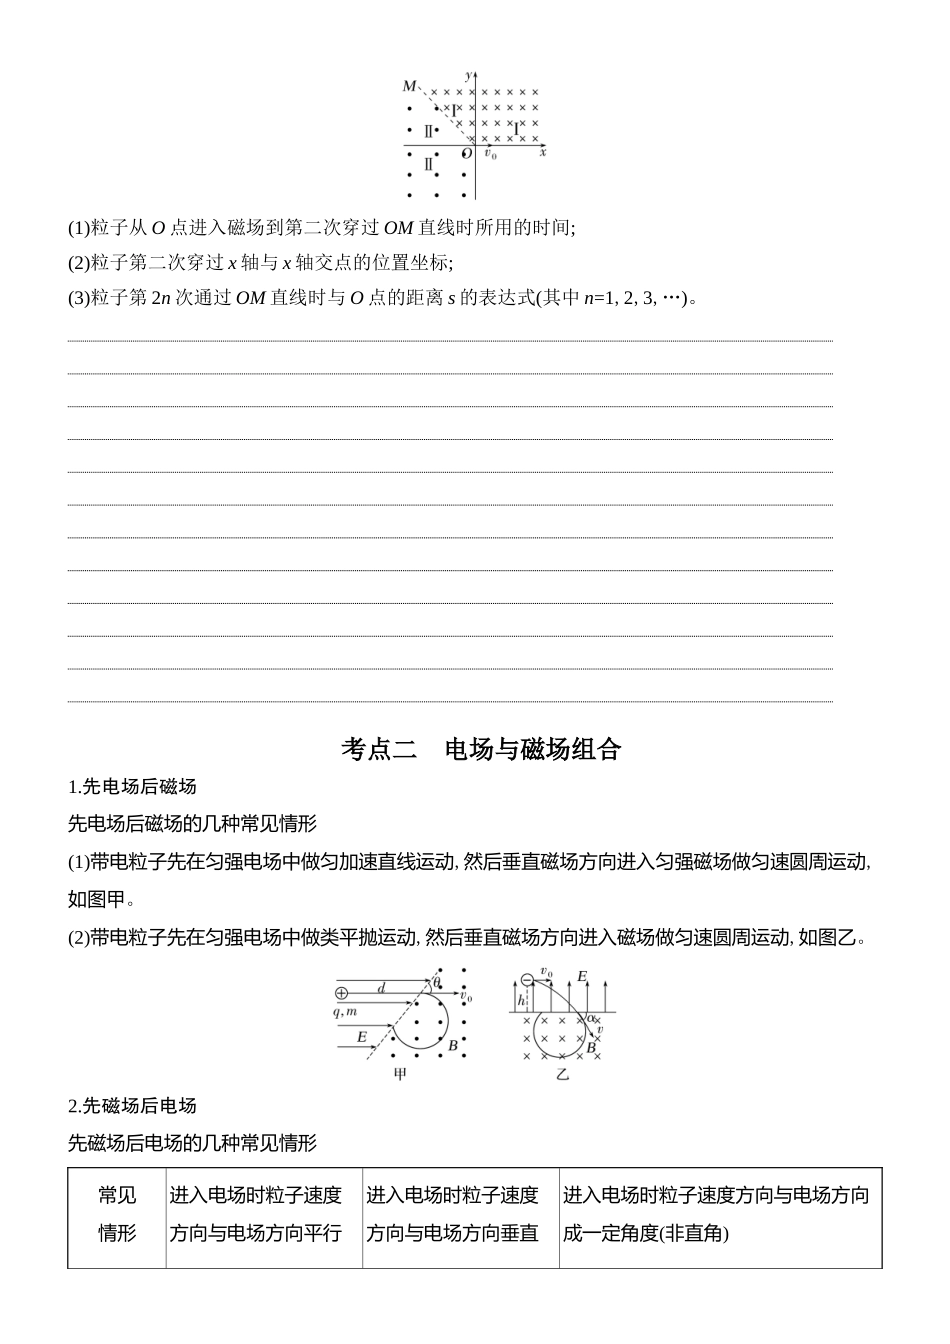 y
M
Ⅰ
Ⅱ
Ⅰ
O v0 x
Ⅱ
(1)粒子从 O 点进入磁场到第二次穿过 OM 直线时所用的时间;
(2)粒子第二次穿过 x 轴与 x 轴交点的位置坐标;
(3)粒子第 2n 次通过 OM 直线时与 O 点的距离 s 的表达式(其中 n=1, 2, 3, …)。
考点二 电场与磁场组合
1.先电场后磁场
先电场后磁场的几种常见情形
(1)带电粒子先在匀强电场中做匀加速直线运动, 然后垂直磁场方向进入匀强磁场做匀速圆周运动,
如图甲。
(2)带电粒子先在匀强电场中做类平抛运动, 然后垂直磁场方向进入磁场做匀速圆周运动, 如图乙。
θ
d
v0
q, m
E
B
甲
v0 E
h
α
v
B
乙
2.先磁场后电场
先磁场后电场的几种常见情形
常见 进入电场时粒子速度 进入电场时粒子速度 进入电场时粒子速度方向与电场方向
情形 方向与电场方向平行 方向与电场方向垂直 成一定角度(非直角)